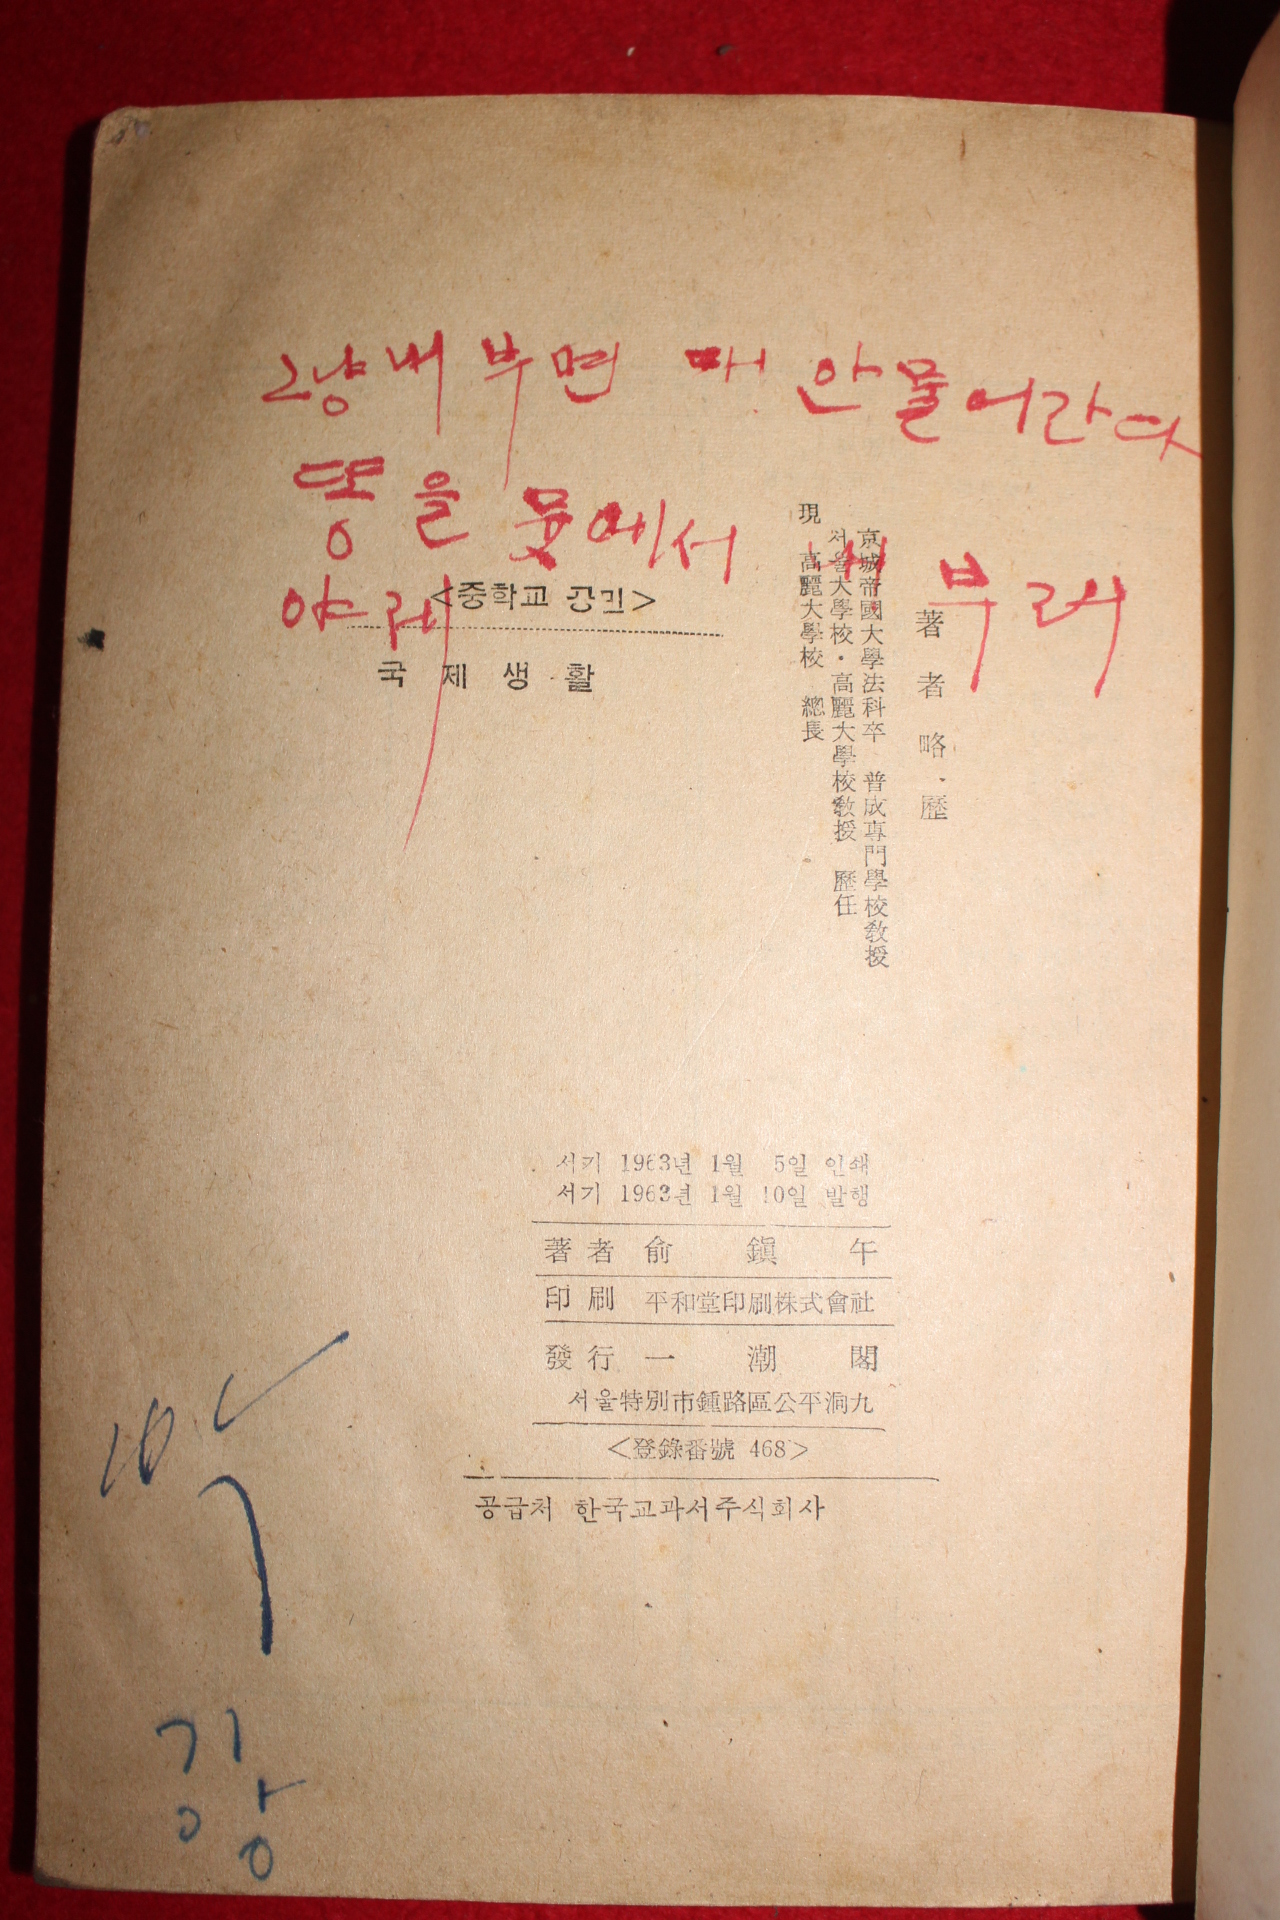 그냥 내 부면 매 안물어란다
똥을 못에서 내 부래
야래
<중학교 공민>
국제생활
著者略歷
京城帝國大學法科卒 普成專門學校敎授
서울大學校・高麗大學校敎授 歷任
現 高麗大學校 總長
서기 1963년 1월 5일 인쇄
서기 1963년 1월 10일 발행
著者 兪鎭午
印刷 平和堂印刷株式會社
發行 一潮閣
서울特別市鍾路區公平洞九
<登錄番號 468>
공급처 한국교과서주식회사